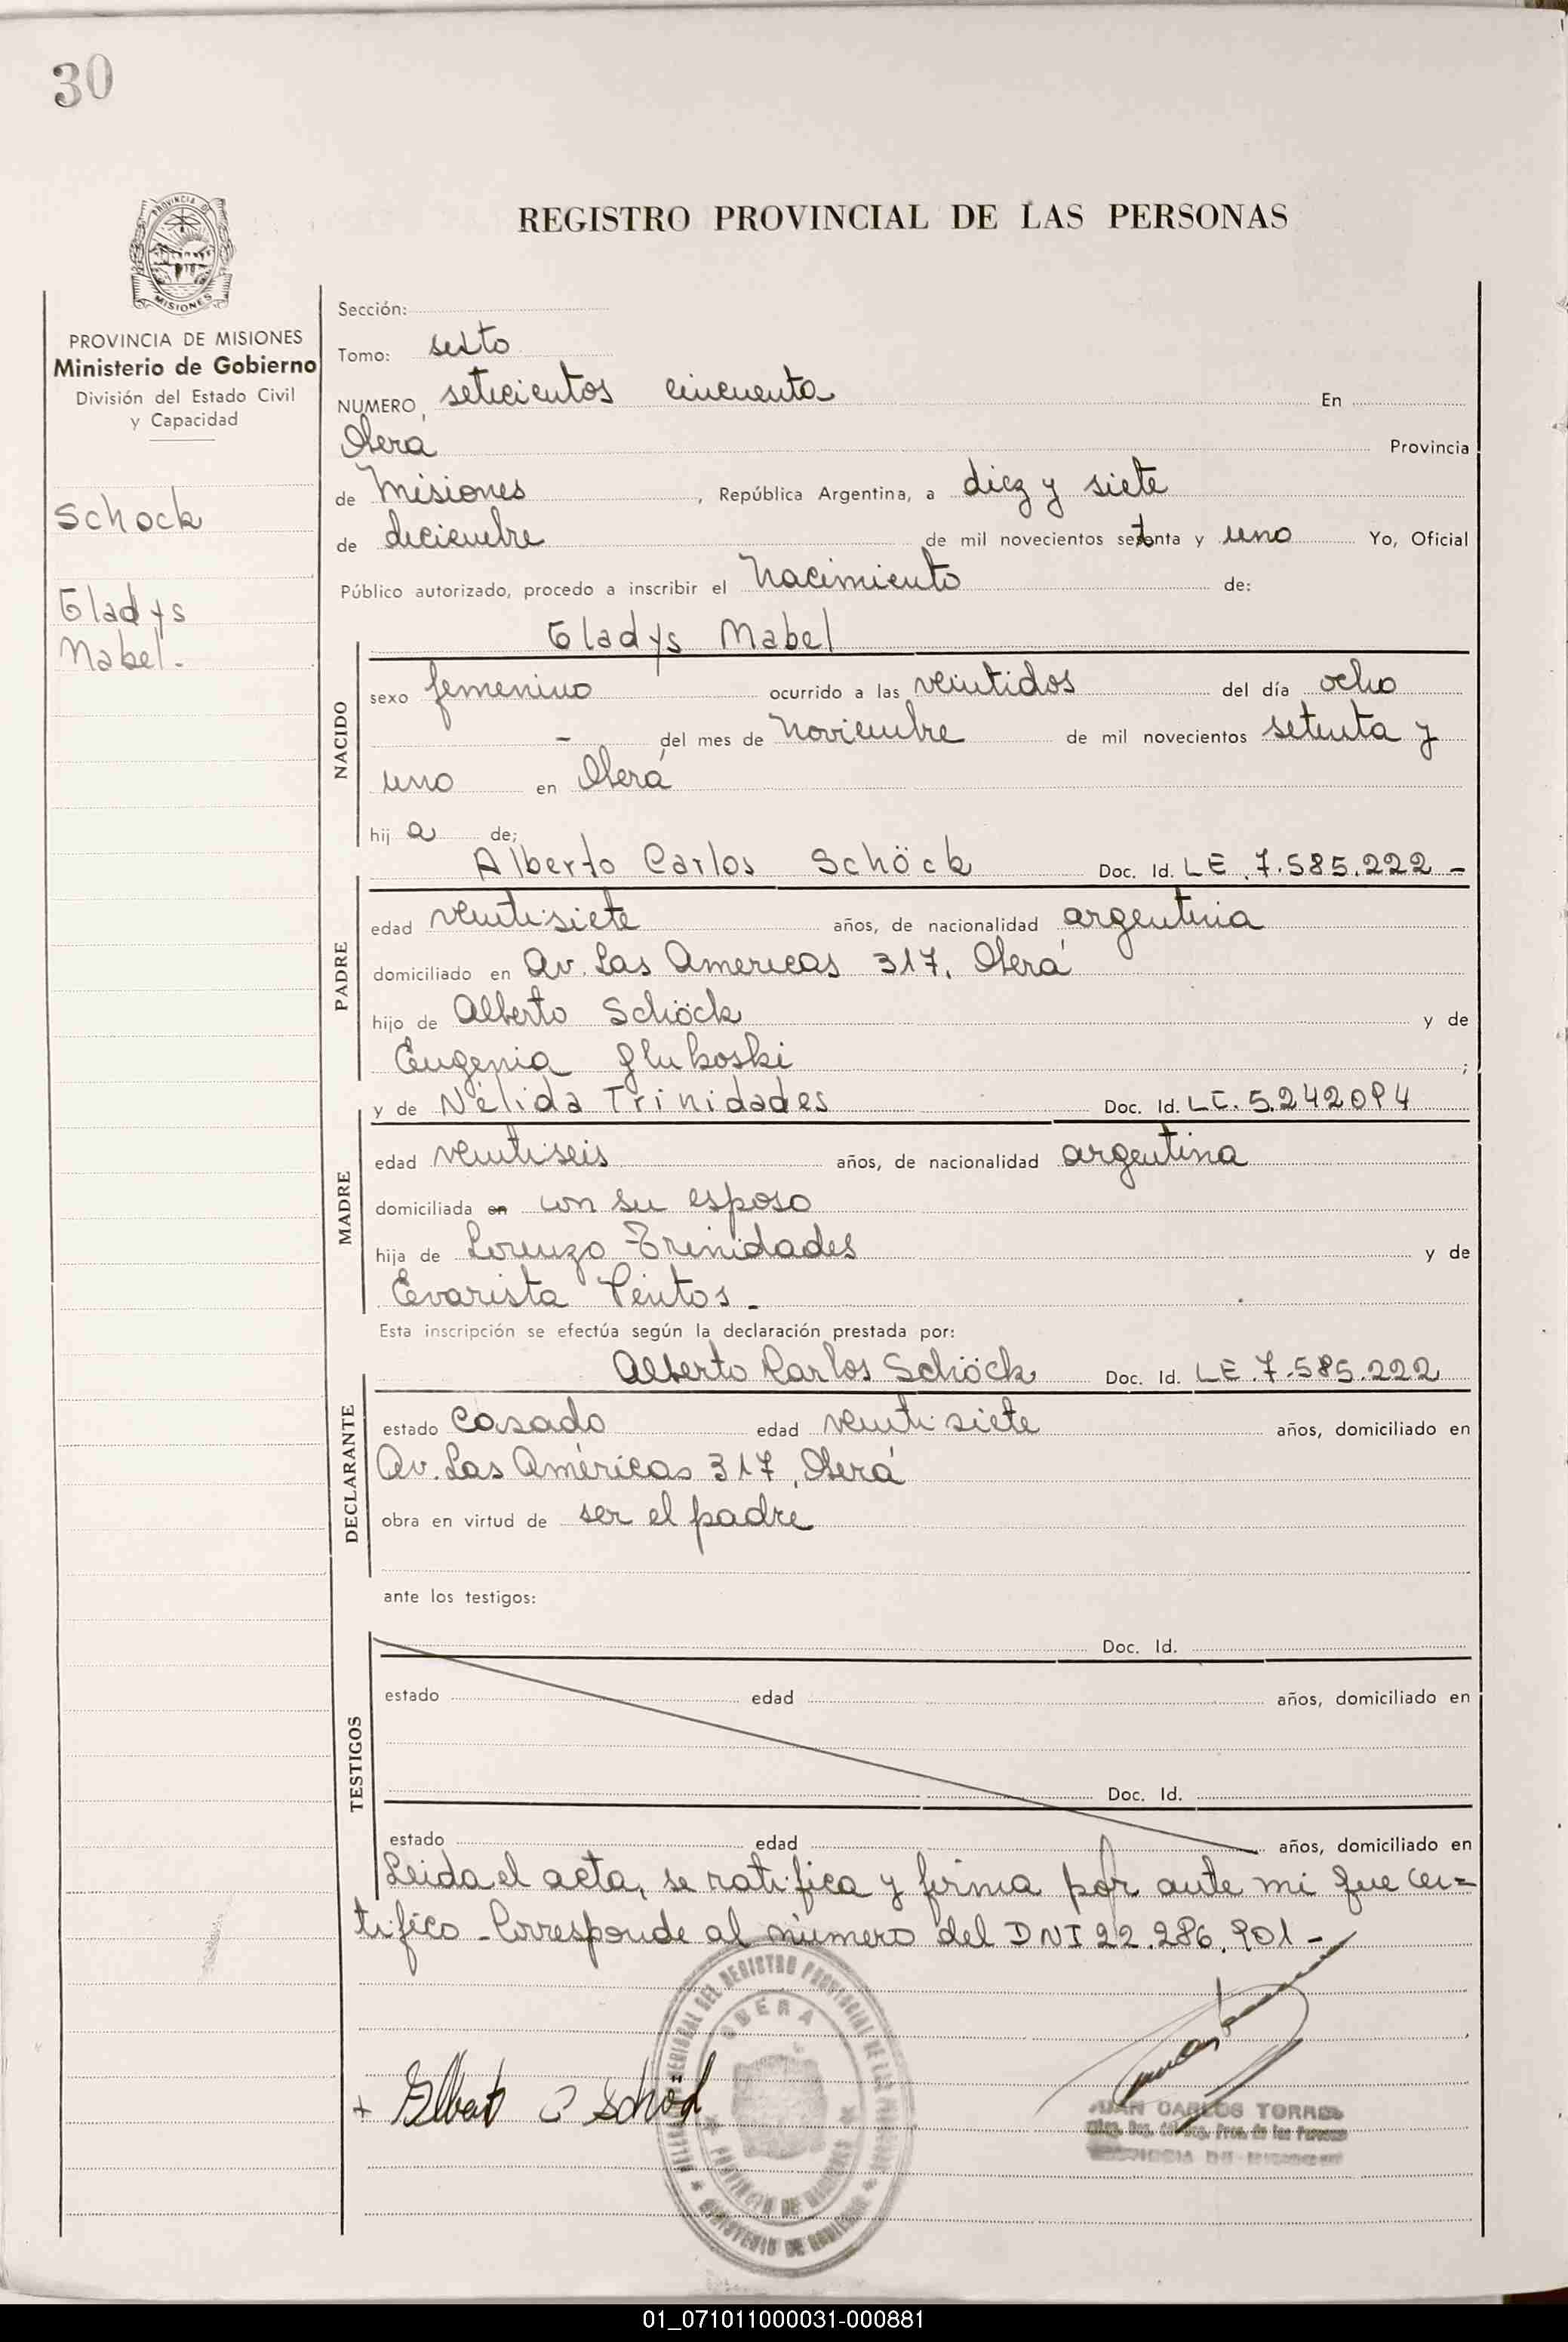 30
PROVINCIA DE
MISIONES
PROVINCIA DE MISIONES
Ministerio de Gobierno
División del Estado Civil
y Capacidad
Schock
Gladys
Mabel.-
REGISTRO PROVINCIAL DE LAS PERSONAS
Sección:
Tomo: sexto
NUMERO, setecientos cincuenta En
Oberá Provincia
de Misiones, República Argentina, a diez y siete
de diciembre de mil novecientos setenta y uno Yo, Oficial
Público autorizado, procedo a inscribir el Nacimiento de:
Gladys Mabel
NACIDO
sexo femenino ocurrido a las veintidos del día ocho
- del mes de Noviembre de mil novecientos setenta y
uno en Oberá
hija de;
Alberto Carlos Schöck Doc. Id. LE.7.585.222-
PADRE
edad veintisiete años, de nacionalidad argentina
domiciliado en Av. Las Americas 317, Oberá
hijo de Alberto Schöck y de
Eugenia Gluboski;
y de Nélida Trinidades Doc. Id. LC. 5.242094
MADRE
edad veintiseis años, de nacionalidad argentina
domiciliada en con su esposo
hija de Lorenzo Trinidades y de
Evarista
Esta inscripción se efectúa según la declaración prestada por:
Alberto Carlos Schöck Doc. Id. LE.7.585.222
DECLARANTE
estado casado edad veintisiete años, domiciliado en
Av. Las Américas 317, Oberá
obra en virtud de ser el padre
ante los testigos:
Doc. Id.
TESTIGOS
estado edad años, domiciliado en
Doc. Id.
estado edad años, domiciliado en
Leida el acta, se ratifica y firma por ante mi que cer=
tifico - Corresponde al número del DNI 22.286.901-
DEL REGISTRO PROVINCIAL DE LAS
OBERA
PROVINCIA DE MISIONES
MINISTERIO DE GOBIERNO
+ Albert C Schöck
JUAN CARLOS TORRES
01_071011000031-000881